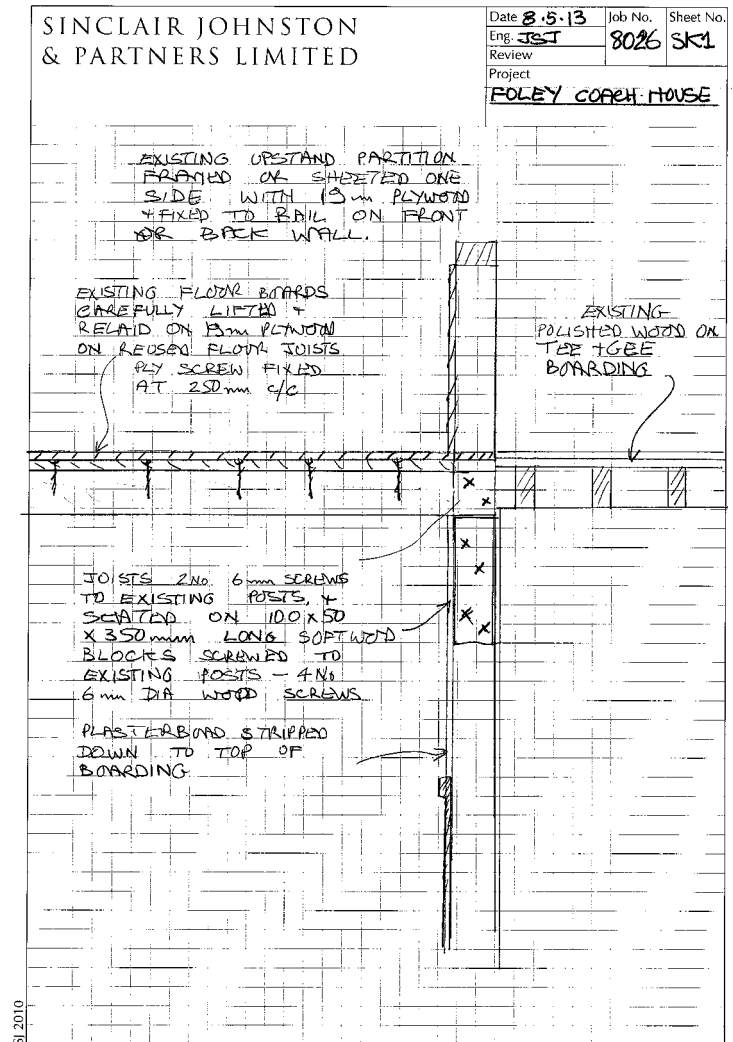 SINCLAIR JOHNSTON
& PARTNERS LIMITED
Date 8.5.13
Job No. 8026
Sheet No. SK1
Eng. JSJ
Review
Project
FOLEY COACH HOUSE
EXISTING UPSTAND PARTITION
FRAMED OR SHEETED ONE
SIDE WITH 19mm PLYWOOD
+ FIXED TO RAIL ON FRONT
OR BACK WALL.
EXISTING FLOOR BOARDS
CAREFULLY LIFTED +
RELAID ON 19mm PLYWOOD
ON REUSED FLOOR JOISTS
PLY SCREW FIXED
AT 250mm c/c
EXISTING
POLISHED WOOD ON
TEE + GEE
BOARDING
JOISTS 2No. 6mm SCREWS
TO EXISTING POSTS, +
SEATED ON 100 x 50
x 350mm LONG SOFTWOOD
BLOCKS SCREWED TO
EXISTING POSTS - 4No
6mm DIA WOOD SCREWS
PLASTERBOARD STRIPPED
DOWN TO TOP OF
BOARDING
SJ 2010